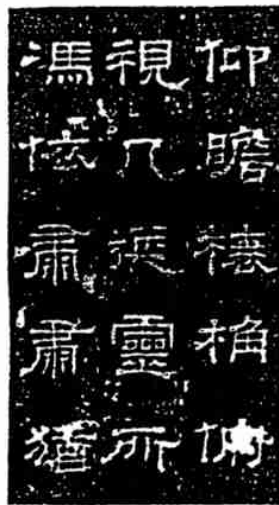 仰瞻榱桷俯
視几筵靈所
馮依肅肅猶